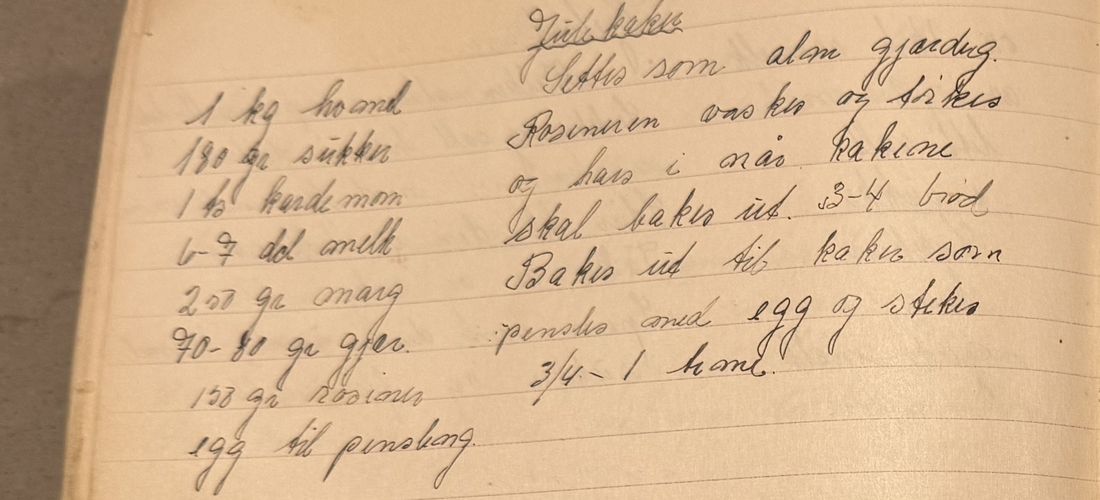 Julekaker
1 kg hvmel
180 gr sukker
1 ts kardemom
6-7 dcl melk
250 gr marg
70-80 gr gjær.
150 gr rosiner
egg til pensling.
Settes som alm gjærdeig.
Rosinene vaskes og tørkes
og haes i når kakene
skal bakes ut. 3-4 brød
Bakes ut til kaker som
pensles med egg og stekes
3/4 - 1 time.